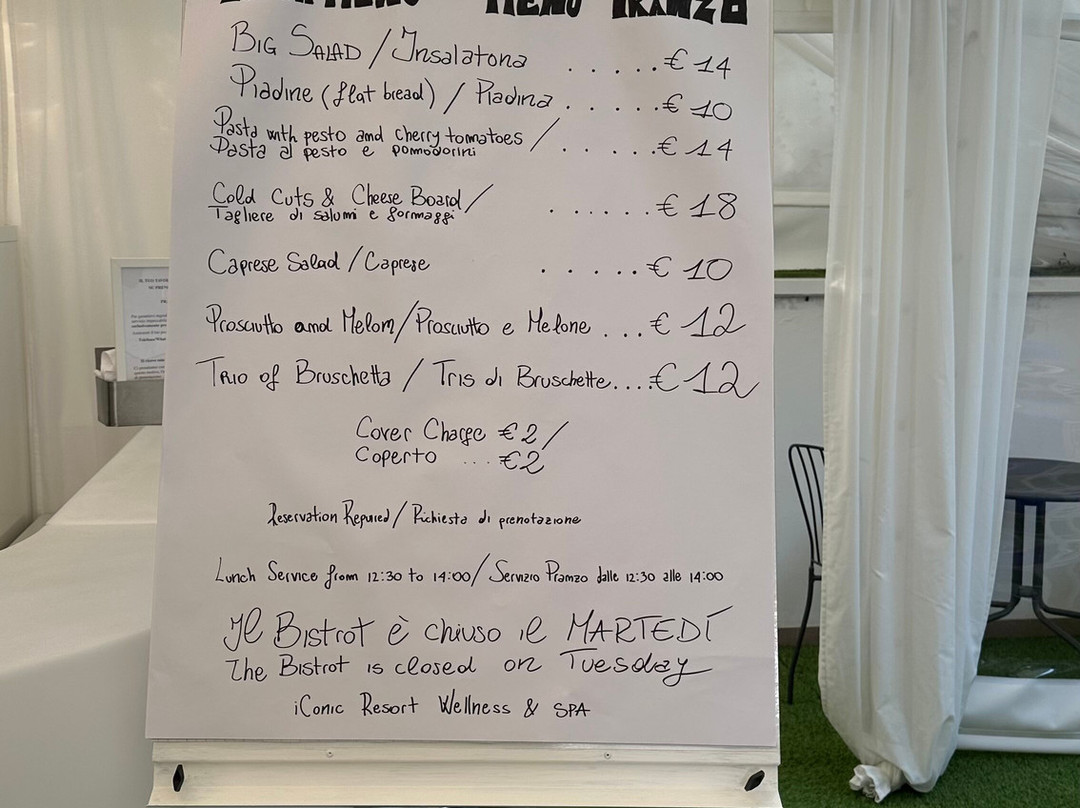 MENU PRANZO
BIG SALAD / Insalatona ..... € 14
Piadine (flat bread) / Piadina ..... € 10
Pasta with pesto and cherry tomatoes /
Pasta al pesto e pomodorini ...... € 14
Cold Cuts & Cheese Board /
Tagliere di salumi e formaggi ...... € 18
Caprese Salad / Caprese ...... € 10
Prosciutto and Melon / Prosciutto e Melone ... € 12
Trio of Bruschetta / Tris di Bruschette.... € 12
Cover Charge € 2 /
Coperto ... € 2
Reservation Required / Richiesta di prenotazione
Lunch Service from 12:30 to 14:00 / Servizio Pranzo dalle 12:30 alle 14:00
Il Bistrot è chiuso il MARTEDÌ
The Bistrot is closed on Tuesday
iConic Resort Wellness & SPA